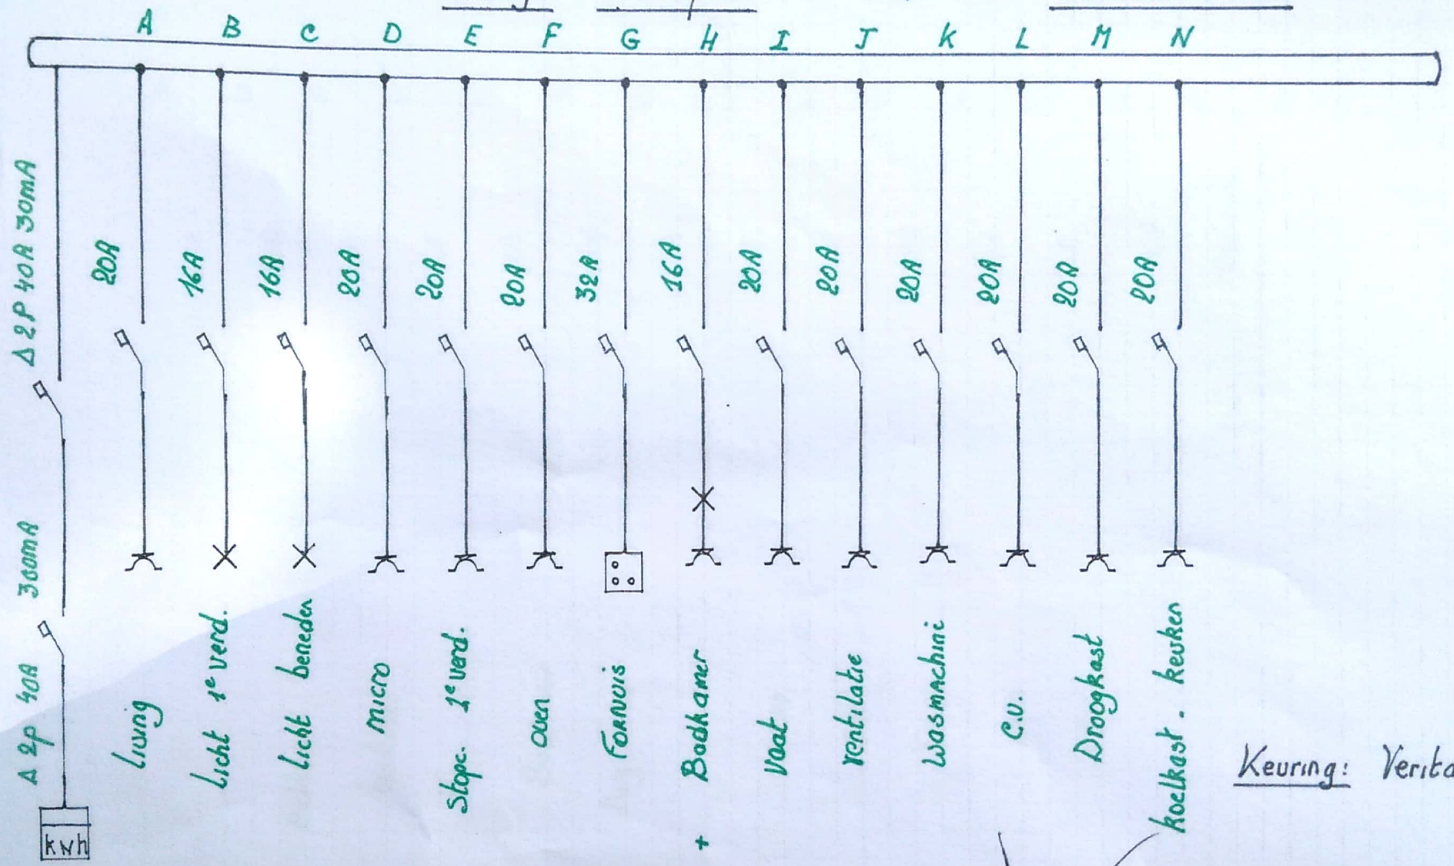 A B C D E F G H I J K L M N
Δ 2P 40A 30mA
20A
16A
16A
20A
20A
20A
32A
16A
20A
20A
20A
20A
20A
20A
Δ 2p 40A 300mA
Living
Licht 1e verd.
Licht beneden
micro
Stopc. 1e verd.
oven
Fornuis
+ Badkamer
Vaat
Ventilatie
Wasmachini
C.V.
Droogkast
koelkast. keuken
Keuring: Verita
kwh